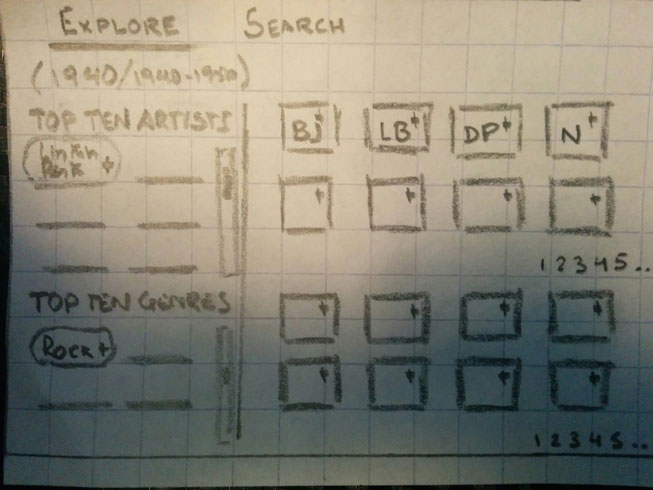 EXPLORE SEARCH
(1940/1940-1950)
TOP TEN ARTISTS
Linkin
Park +
BJ+ LB+ DP+ N+
+ + + +
1 2 3 4 5 ..
TOP TEN GENRES
ROCK +
+ + + +
+ + + +
1 2 3 4 5 ..